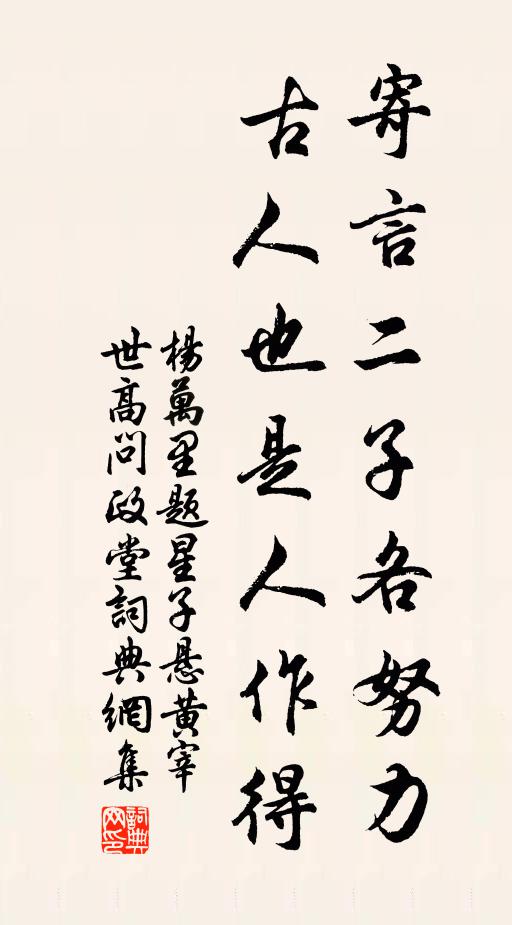 寄言二子各努力
古人也是人作得
楊萬里题星子悬黄宰
世高问政堂詞典網集
詞典网印